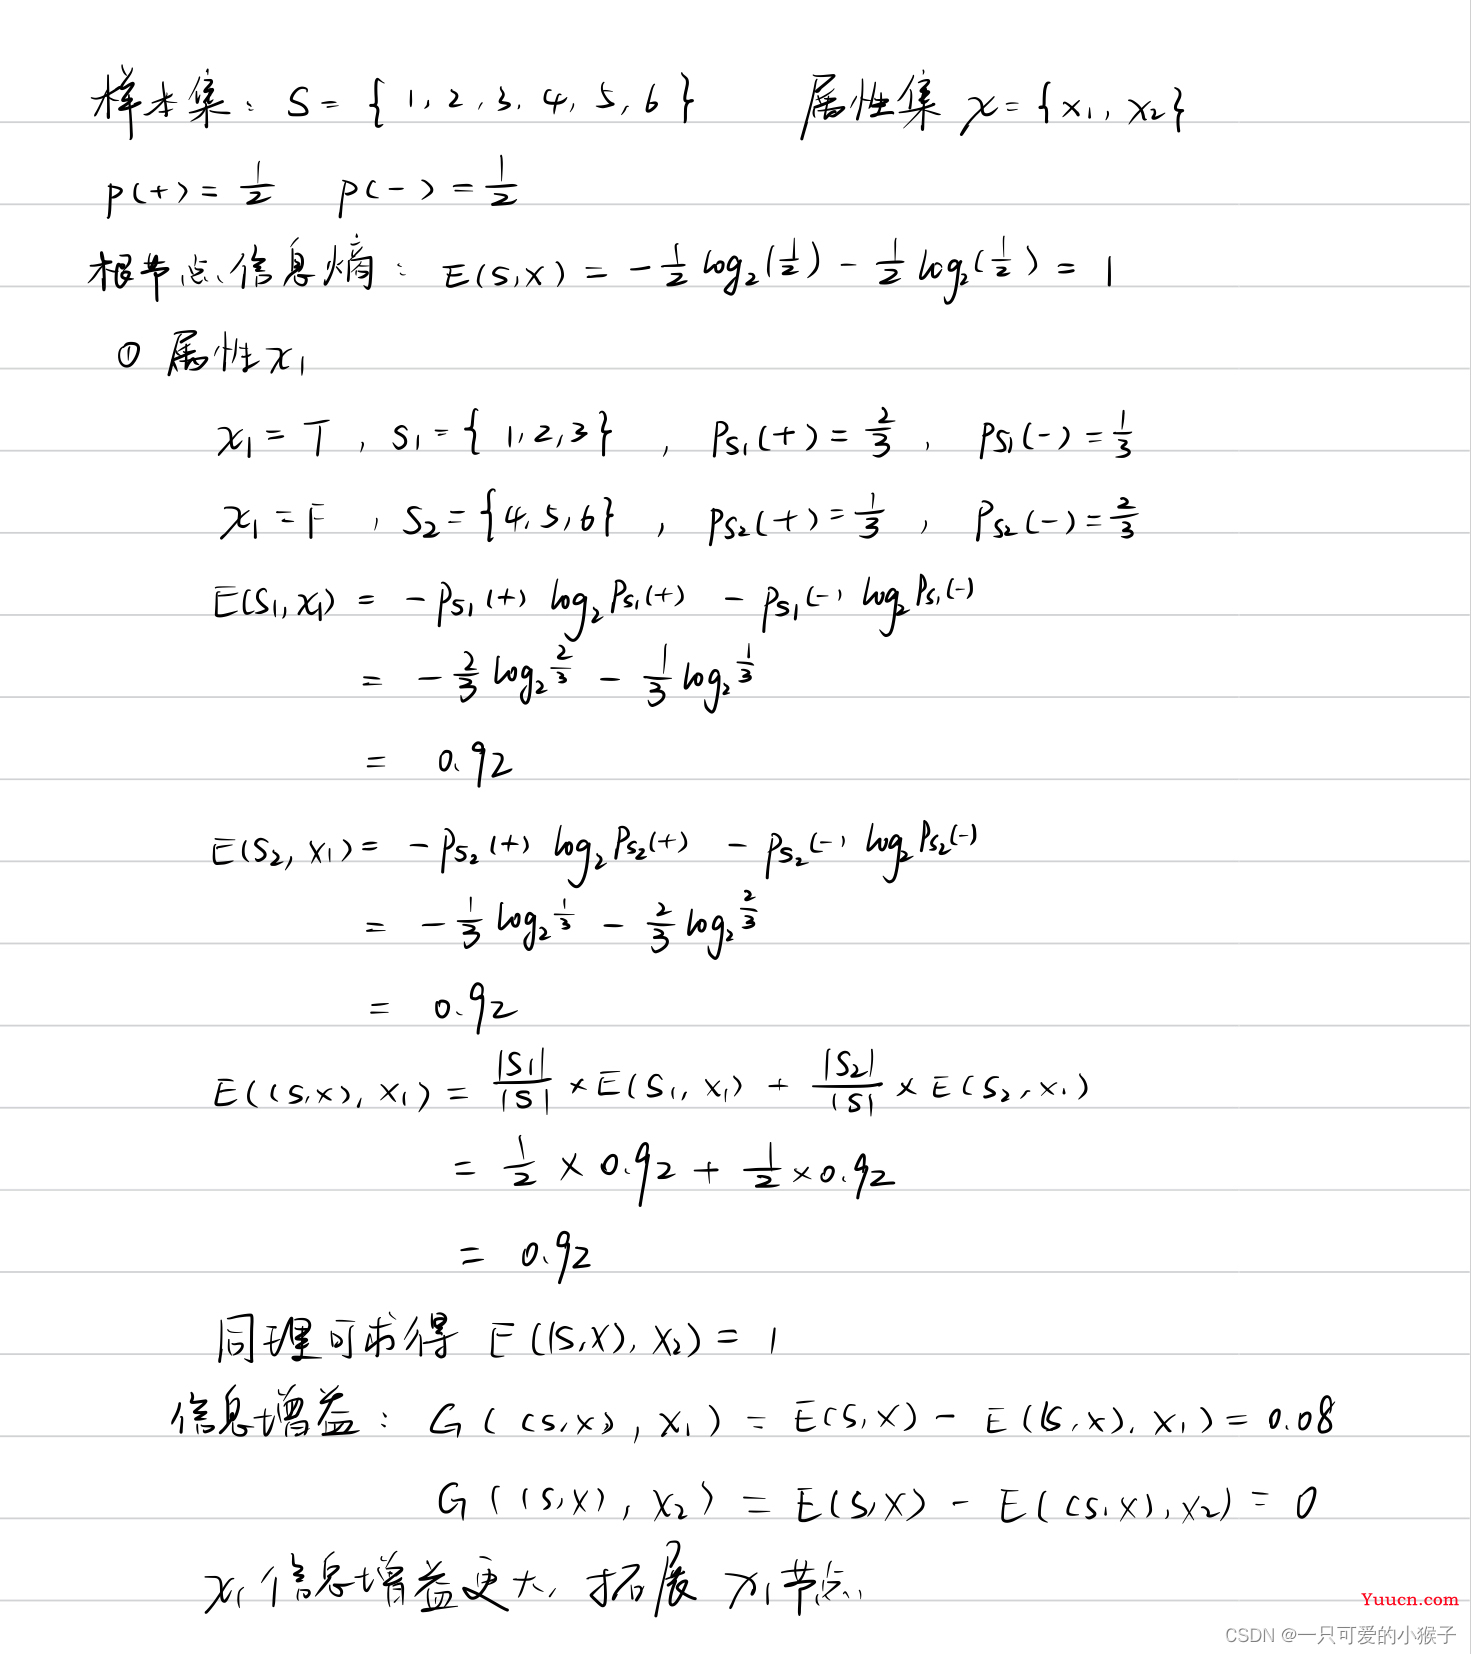 样本集: S = { 1, 2, 3, 4, 5, 6 } 属性集 x = {x₁, x₂}
p(+) = 1/2 p(-) = 1/2
根节点信息熵: E(S,X) = -1/2 log₂(1/2) - 1/2 log₂(1/2) = 1
① 属性x₁
x₁ = T , S₁ = { 1,2,3} , Ps₁(+) = 2/3 , Ps₁(-) = 1/3
x₁ = F , S₂ = {4,5,6} , Ps₂(+) = 1/3 , Ps₂(-) = 2/3
E(S₁, x₁) = -Ps₁(+) log₂Ps₁(+) - Ps₁(-) log₂Ps₁(-)
= -2/3 log₂ 2/3 - 1/3 log₂ 1/3
= 0.92
E(S₂, x₁) = -Ps₂(+) log₂Ps₂(+) - Ps₂(-) log₂Ps₂(-)
= -1/3 log₂ 1/3 - 2/3 log₂ 2/3
= 0.92
E((S,X), x₁) = |S₁|/|S| × E(S₁, x₁) + |S₂|/|S| × E(S₂, x₁)
= 1/2 × 0.92 + 1/2 × 0.92
= 0.92
同理可求得 E((S,X), x₂) = 1
信息增益: G((S,X), x₁) = E(S,X) - E((S,X), x₁) = 0.08
G((S,X), x₂) = E(S,X) - E((S,X), x₂) = 0
x₁信息增益更大, 拓展 x₁节点
Yuucn.com
CSDN @一只可爱的小猴子